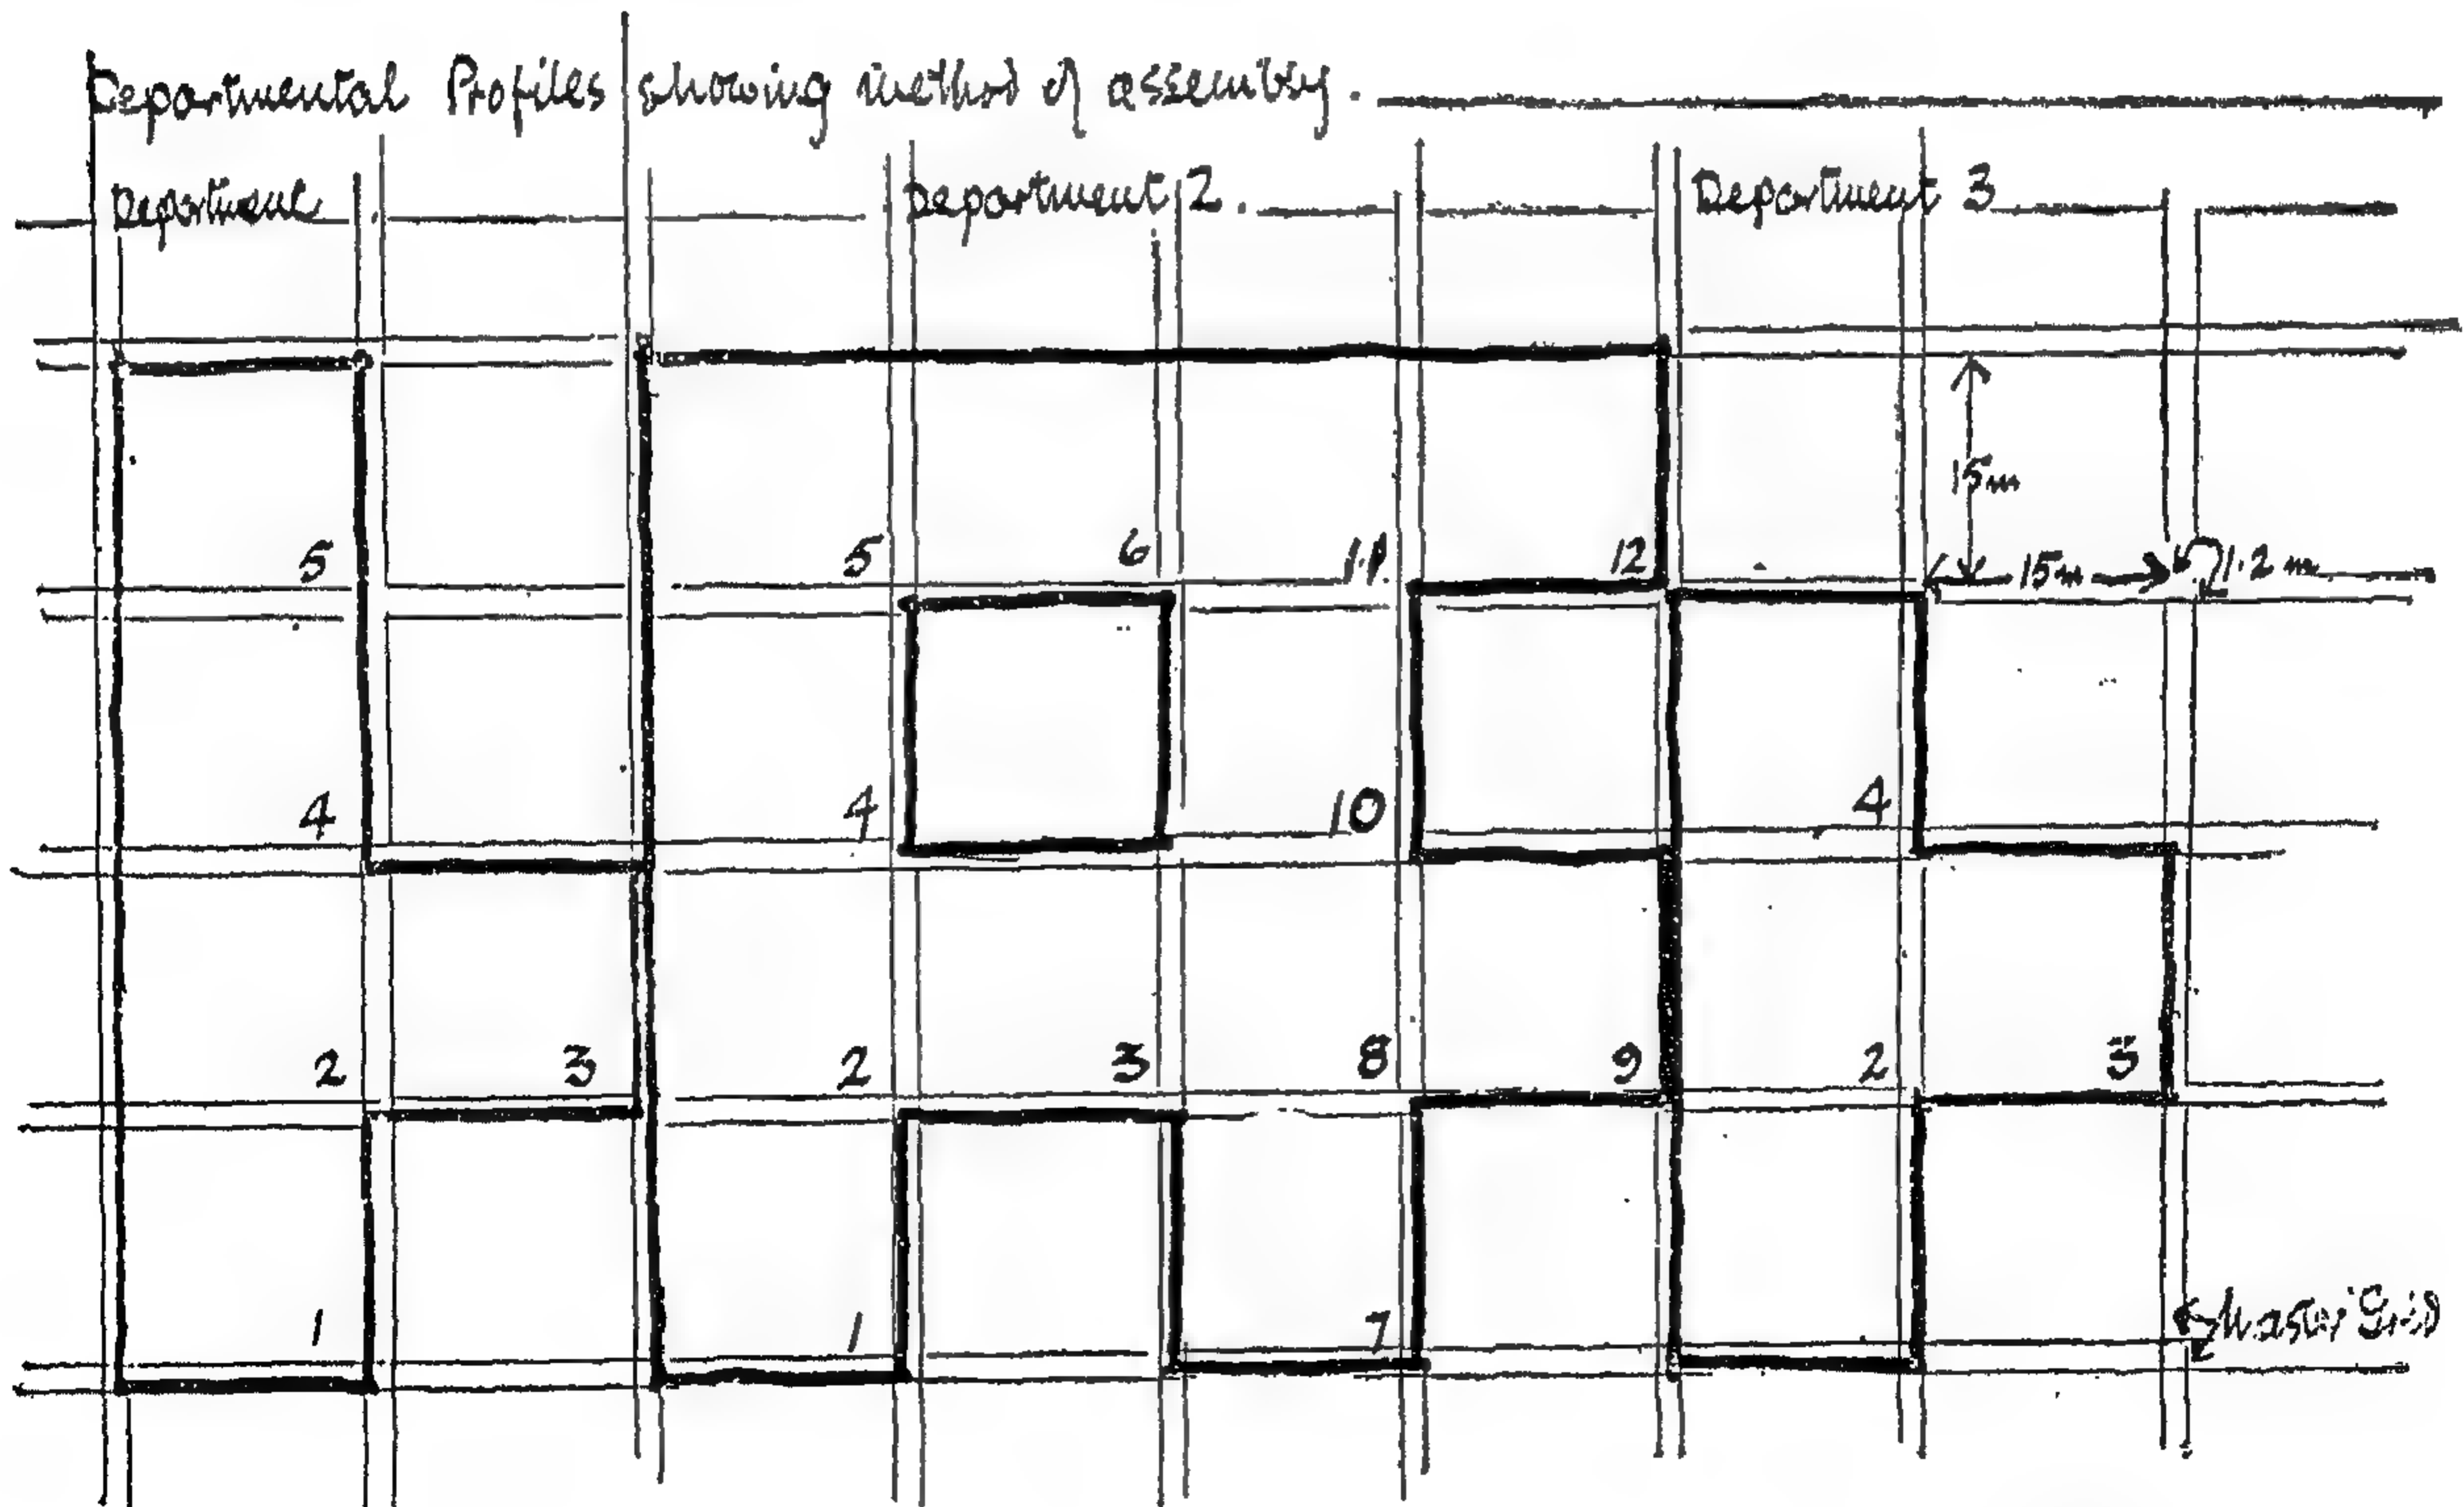 Departmental Profiles showing method of assembly.
Department 1. Department 2. Department 3
15m
5 5 6 11 12 15m 1.2m
4 4 10 4
2 3 2 3 8 9 2 3
1 1 7 Master Grid